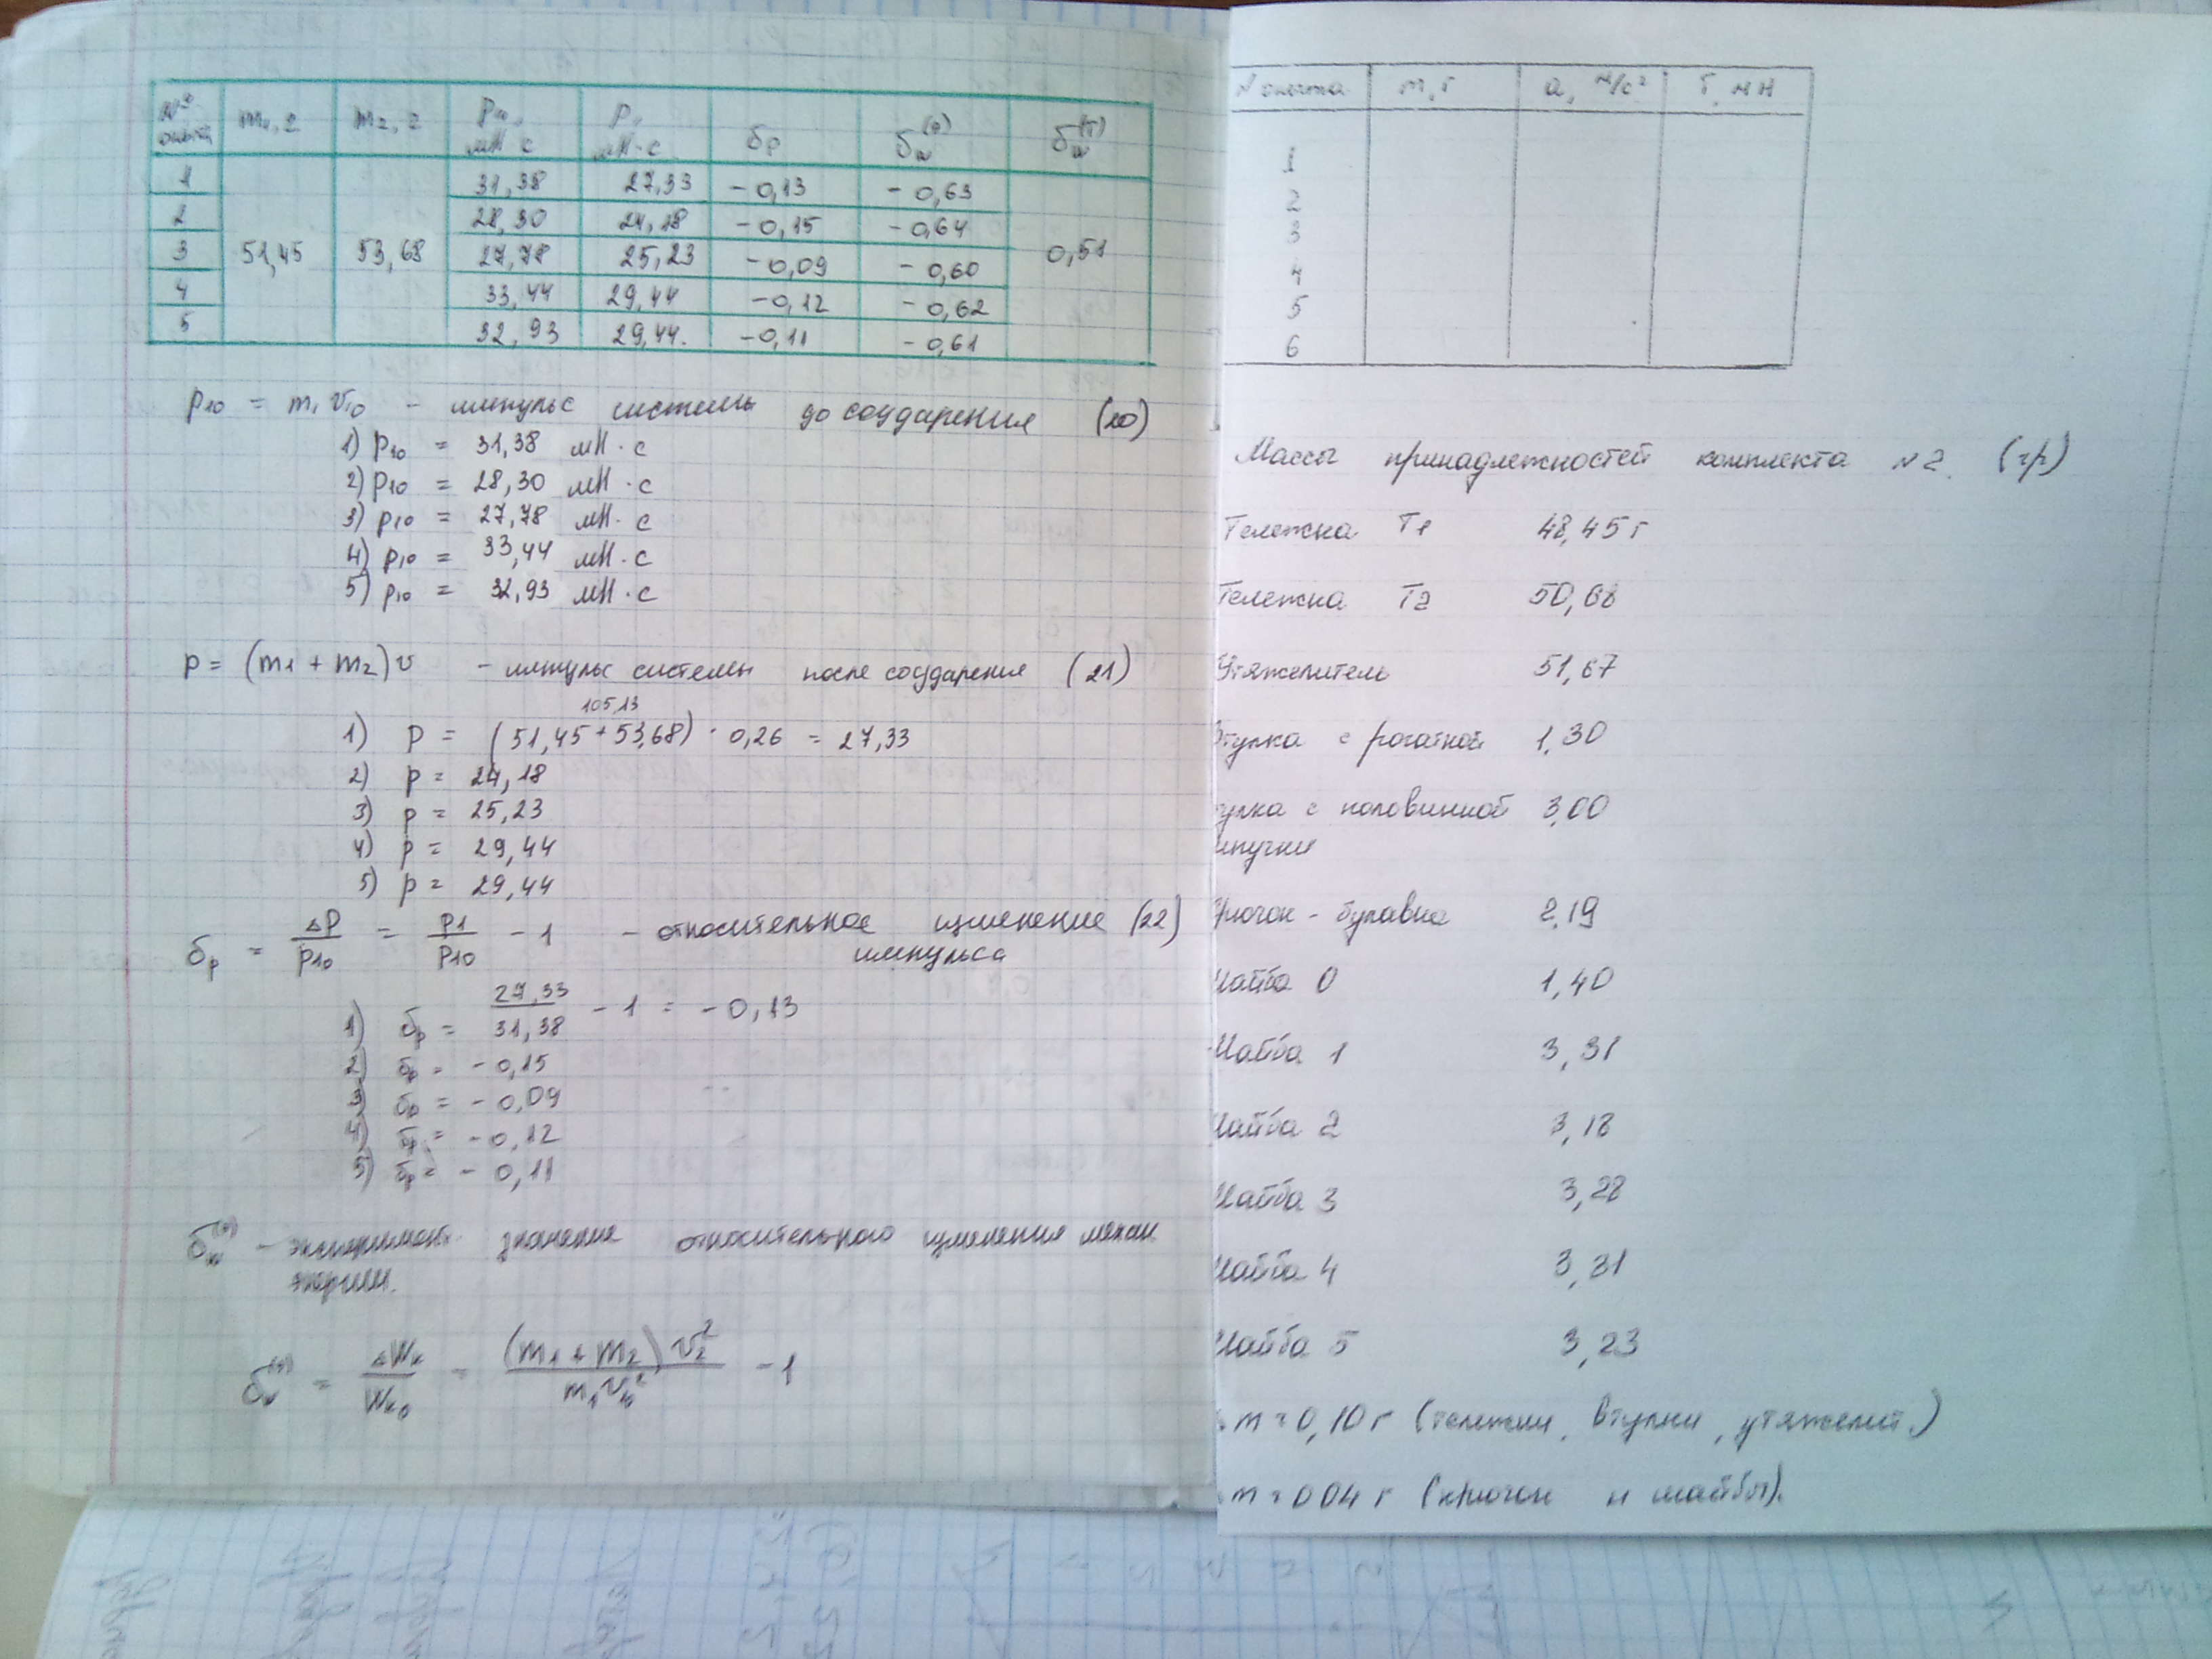 № опыта m₁, г m₂, г p₁₀, мН·с p, мН·с δp δw⁽ᵊ⁾ δw⁽ᵀ⁾
1 31,38 27,33 -0,13 -0,63
2 28,30 24,18 -0,15 -0,64
3 51,45 53,68 27,78 25,23 -0,09 -0,60 0,51
4 33,44 29,44 -0,12 -0,62
5 32,93 29,44. -0,11 -0,61
p₁₀ = m₁ v₁₀ - импульс системы до соударения (20)
1) p₁₀ = 31,38 мН·с
2) p₁₀ = 28,30 мН·с
3) p₁₀ = 27,78 мН·с
4) p₁₀ = 33,44 мН·с
5) p₁₀ = 32,93 мН·с
p = (m₁ + m₂)v - импульс системы после соударения (21)
105,13
1) p = (51,45 + 53,68) · 0,26 = 27,33
2) p = 24,18
3) p = 25,23
4) p = 29,44
5) p = 29,44
δp = ΔP/p₁₀ = p1/p10 - 1 - относительное изменение (22)
импульса
1) δp = 27,33/31,38 - 1 = -0,13
2) δp = -0,15
3) δp = -0,09
4) δp = -0,12
5) δp = -0,11
δw⁽ᵊ⁾ - эксперимент. значение относительного изменения механ
энергии.
δw⁽ᵊ⁾ = ΔWк/Wк₀ = (m₁ + m₂) v₂²/m₁v₁₀² - 1
N опыта m, г a, м/с² T, мН
1
2
3
4
5
6
Массы принадлежностей комплекта №2. (гр)
Тележка T1 48,45 г
Тележка T2 50,68
Утяжелитель 51,67
Втулка с рогаткой 1.30
тулка с половинкой 3,00
липучки
Крючок - булавка 2.19
Шайба 0 1,40
Шайба 1 3,31
Шайба 2 3,18
Шайба 3 3,28
Шайба 4 3,31
Шайба 5 3,23
m = 0,10 г (тележки, втулки, утяжелит.)
m = 0.04 г (крючок и шайбы).